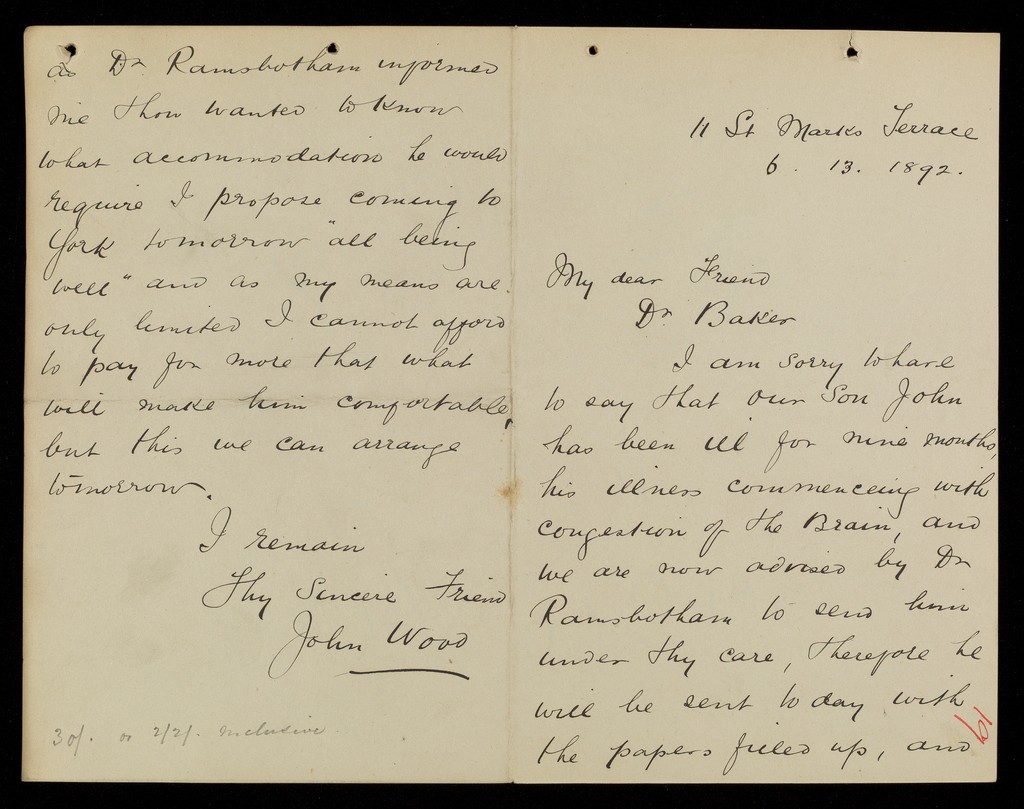 11 St Marks Terrace
6. 13. 1892.
My dear Friend
Dr Baker
I am sorry to have
to say that our Son John
has been ill for nine months,
his illness commenceing with
congestion of the Brain, and
we are now advised by Dr
Ramsbotham to send him
under thy care, Therefore he
will be sent to day with
the papers filled up, and
19
as Dr Ramsbotham informed
me thou wanted to know
what accommodation he would
require I propose coming to
York tomorrow "all being
well" and as my means are
only limited I cannot afford
to pay for more that what
will make him comfortable,
but this we can arrange
tomorrow.
I remain
Thy Sincere Friend
John Wood
30/. or 2/2/. inclusive.